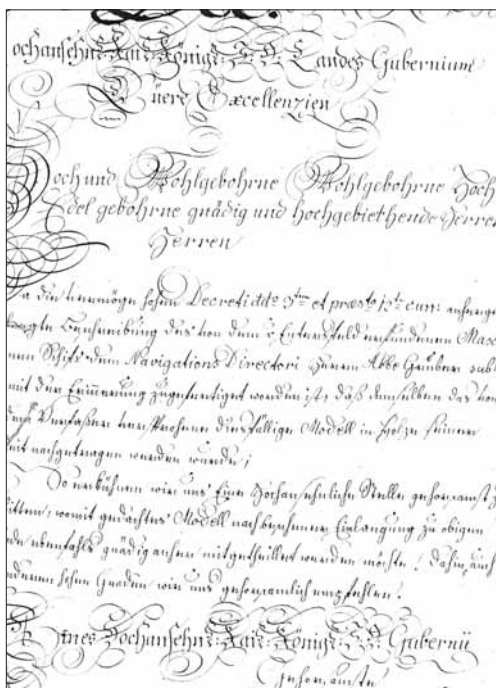 ochansehnl: Kais: Königl: I: O: Landes Gubernium
Euere Excellenzien
och und Wohlgebohrne Wohlgebohrne Hoch
Edel gebohrne gnädig und hochgebiethende Herren
Herren
a die vermög hohen Decreti ddo 3ten et præsto 12t curr:
Beschreibung des von dem Entersfeld erfundenen Masc
nen Schifs dem Navigations Directori Herrn Abbe Gruber
mit der Erinnerung zugefertiget worden ist, daß demselben das von
dem Verfaßer versprochene diesfällige Modell in Holze seiner
eit nachgetragen werden wurde;
So erkühnen wir uns Eine Hochansehnliche Stelle gehorsamst z
itten, womit gedachtes Modell nach beschehener Einlangung zu obigen
de ebenfahls gnädig anher mitgetheillet werden möchte. Dahin auch
deren hohen Gnaden wir uns gehorsamlich empfehlen.
Eines Hochansehnl: Kais: Königl: I: O: Guberny
gehorsamste